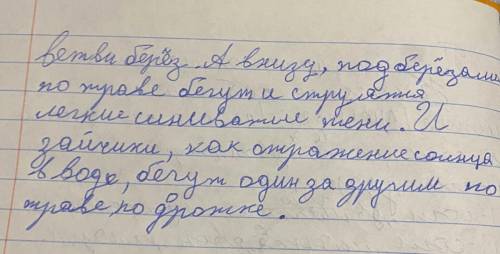 ветви берёз. А внизу, под берёзами
по траве бегут и струятся
легкие синиватые тени. И
зайчики, как отражение солнца
в воде, бегут один за другим по
траве, по дрожке.